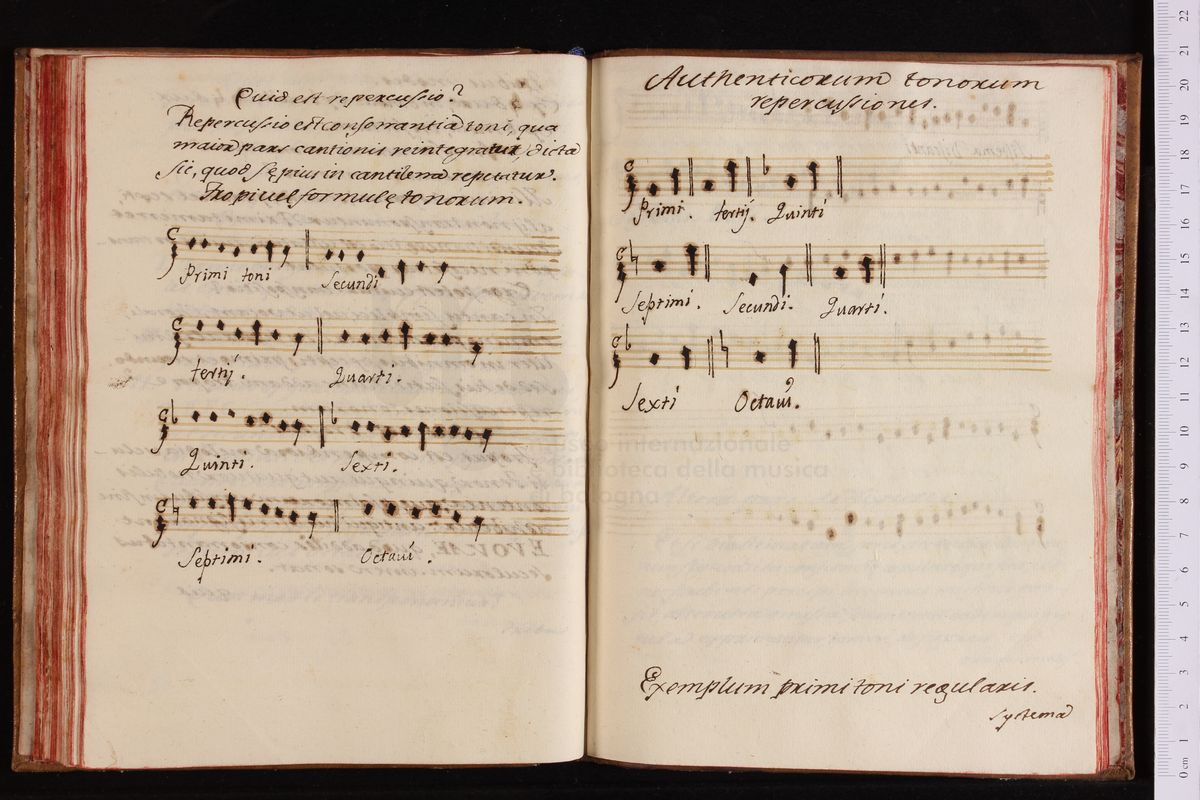 Quid est repercussio?
Repercussio est consonantia toni, qua
maior pars cantionis reintegratur, dicta
sic, quod sępius in cantilena repetatur.
Tropi vel formulę tonorum.
Primi toni Secundi
tertij. Quarti.
Quinti. Sexti.
Septimi. Octaui.
Authenticorum tonorum
repercussiones.
Primi. tertij. Quinti
Septimi. Secundi. Quarti.
Sexti Octaui.
museo internazionale
biblioteca della musica
di bologna
Exemplum primi toni regularis.
Systema
22
21
20
19
18
17
16
15
14
13
12
11
10
9
8
7
6
5
4
3
2
1
0 cm